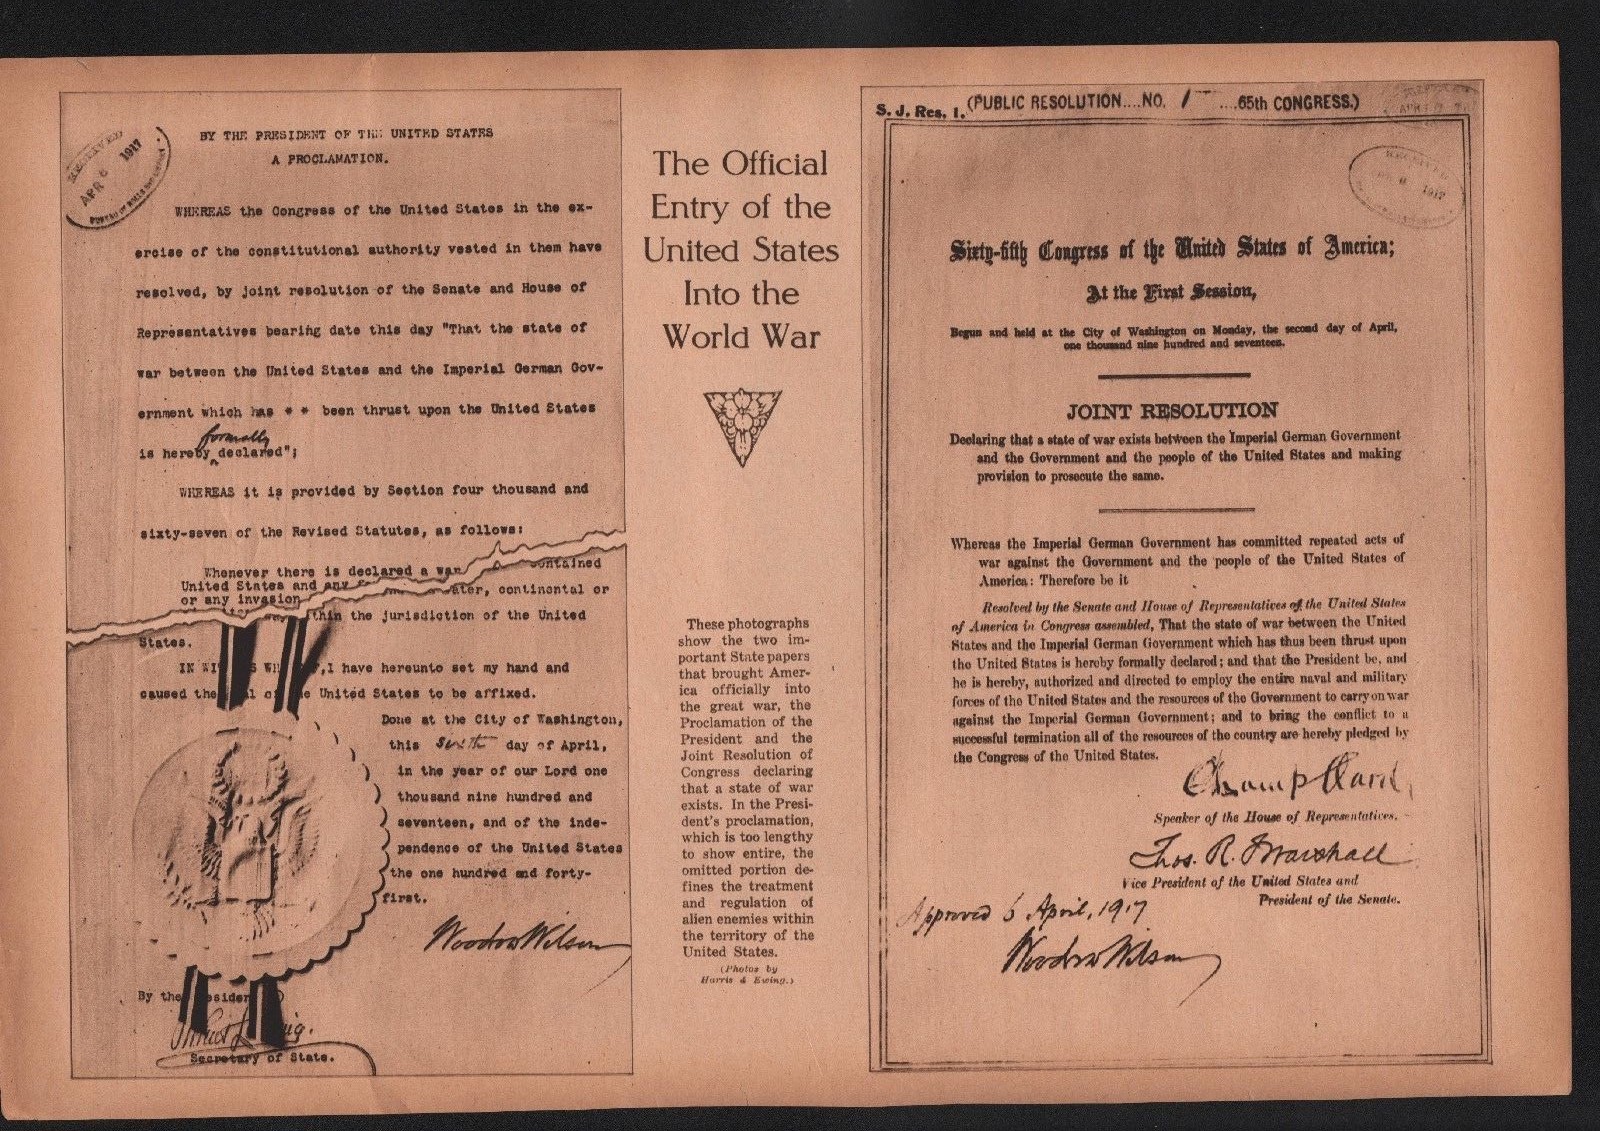 RECEIVED
APR 6 1917
BY THE PRESIDENT OF THE UNITED STATES
A PROCLAMATION.
WHEREAS the Congress of the United States in the ex-
ercise of the constitutional authority vested in them have
resolved, by joint resolution of the Senate and House of
Representatives bearing date this day "That the state of
war between the United States and the Imperial German Gov-
ernment which has * * been thrust upon the United States
formally
is hereby declared";
WHEREAS it is provided by Section four thousand and
sixty-seven of the Revised Statutes, as follows:
Whenever there is declared a war
United States and any
or any invasion
contained
water, continental or
within the jurisdiction of the United
States.
IN WITNESS WHEREOF, I have hereunto set my hand and
caused the seal of the United States to be affixed.
Done at the City of Washington,
this sixth day of April,
in the year of our Lord one
thousand nine hundred and
seventeen, and of the inde-
pendence of the United States
the one hundred and forty-
first.
Woodrow Wilson
By the President
Secretary of State.
The Official
Entry of the
United States
Into the
World War
These photographs
show the two im-
portant State papers
that brought Amer-
ica officially into
the great war, the
Proclamation of the
President and the
Joint Resolution of
Congress declaring
that a state of war
exists. In the Presi-
dent's proclamation,
which is too lengthy
to show entire, the
omitted portion de-
fines the treatment
and regulation of
alien enemies within
the territory of the
United States.
(Photos by
Harris & Ewing.)
S. J. Res. 1. (PUBLIC RESOLUTION....NO. 1 ....65th CONGRESS.)
RECEIVED
1917
Sixty-fifth Congress of the United States of America;
At the First Session,
Begun and held at the City of Washington on Monday, the second day of April,
one thousand nine hundred and seventeen.
JOINT RESOLUTION
Declaring that a state of war exists between the Imperial German Government
and the Government and the people of the United States and making
provision to prosecute the same.
Whereas the Imperial German Government has committed repeated acts of
war against the Government and the people of the United States of
America: Therefore be it
Resolved by the Senate and House of Representatives of the United States
of America in Congress assembled, That the state of war between the United
States and the Imperial German Government which has thus been thrust upon
the United States is hereby formally declared; and that the President be, and
he is hereby, authorized and directed to employ the entire naval and military
forces of the United States and the resources of the Government to carry on war
against the Imperial German Government; and to bring the conflict to a
successful termination all of the resources of the country are hereby pledged by
the Congress of the United States.
Champ Clark
Speaker of the House of Representatives.
Thos. R. Marshall
Vice President of the United States and
President of the Senate.
Approved 6 April, 1917
Woodrow Wilson